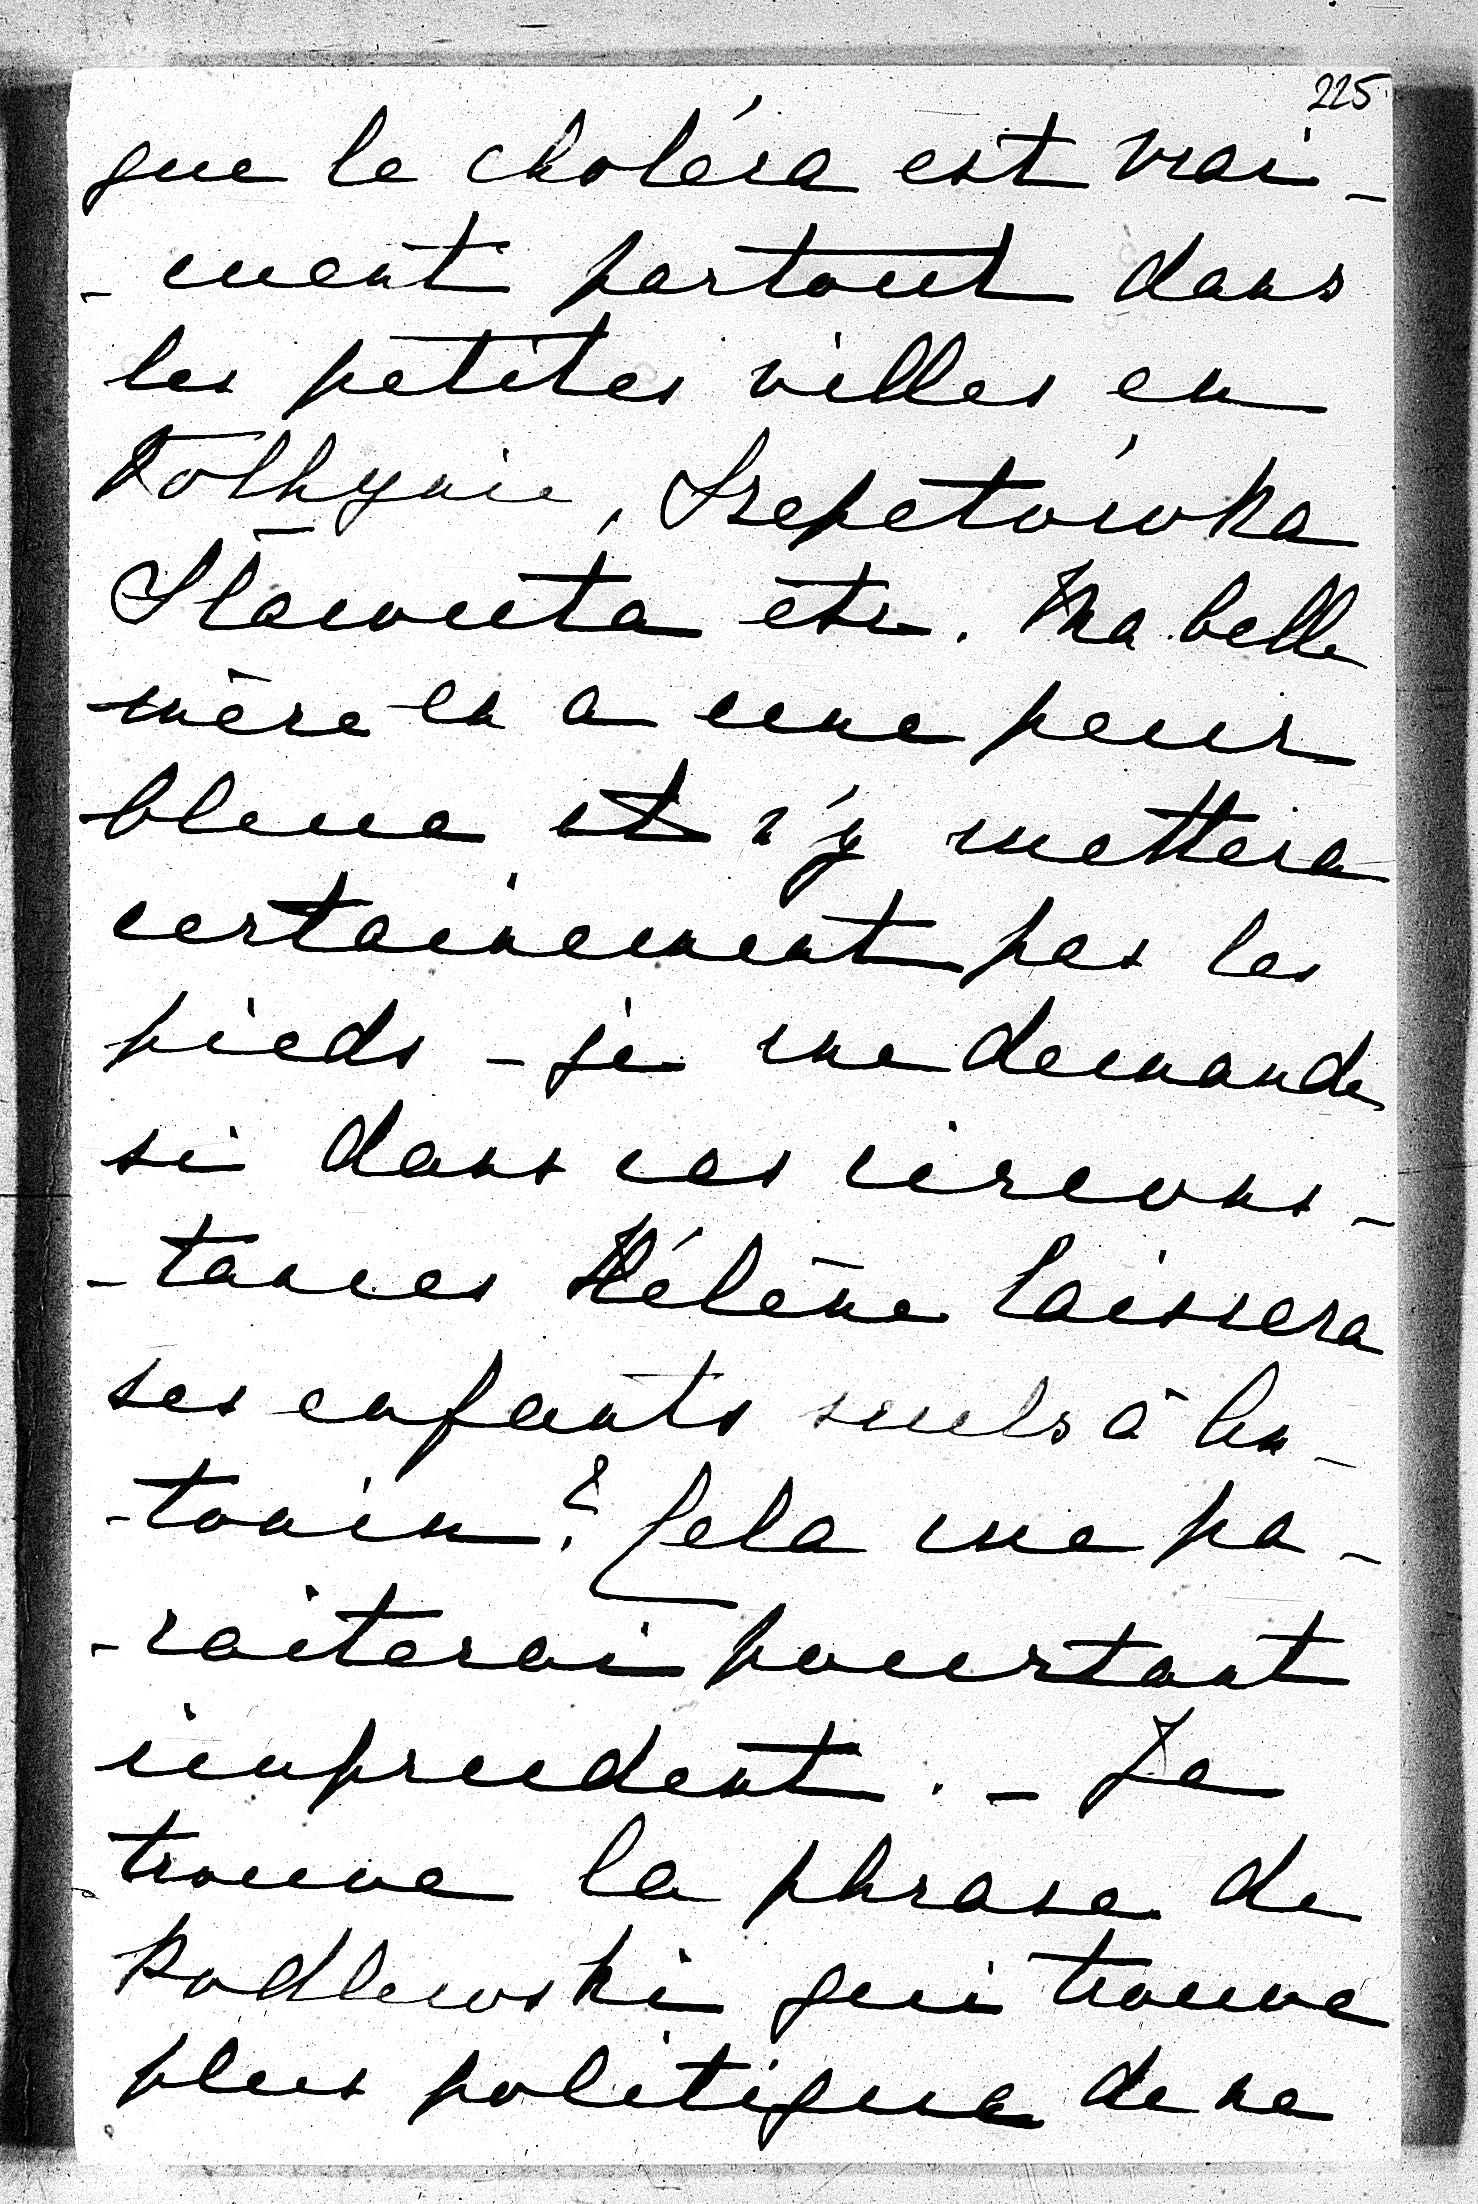 225
que le choléra est vrai-
-ment partout dans
les petites villes en
Volhynie, Szepetówka
Sławuta etc. Ma belle
mère en a une peur
bleue et n'y mettera
certainement pas les
pieds - je me demande
si dans ces circons-
-tances Hélène laissera
ses enfants seuls à An-
-tonin? Cela me pa-
-raiterai pourtant
imprudent. - Je
trouve la phrase de
Podlewski qui trouve
plus politique de ne